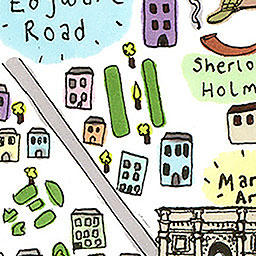 Edgware
Road
Sherlo
Holm
Mar
Ar